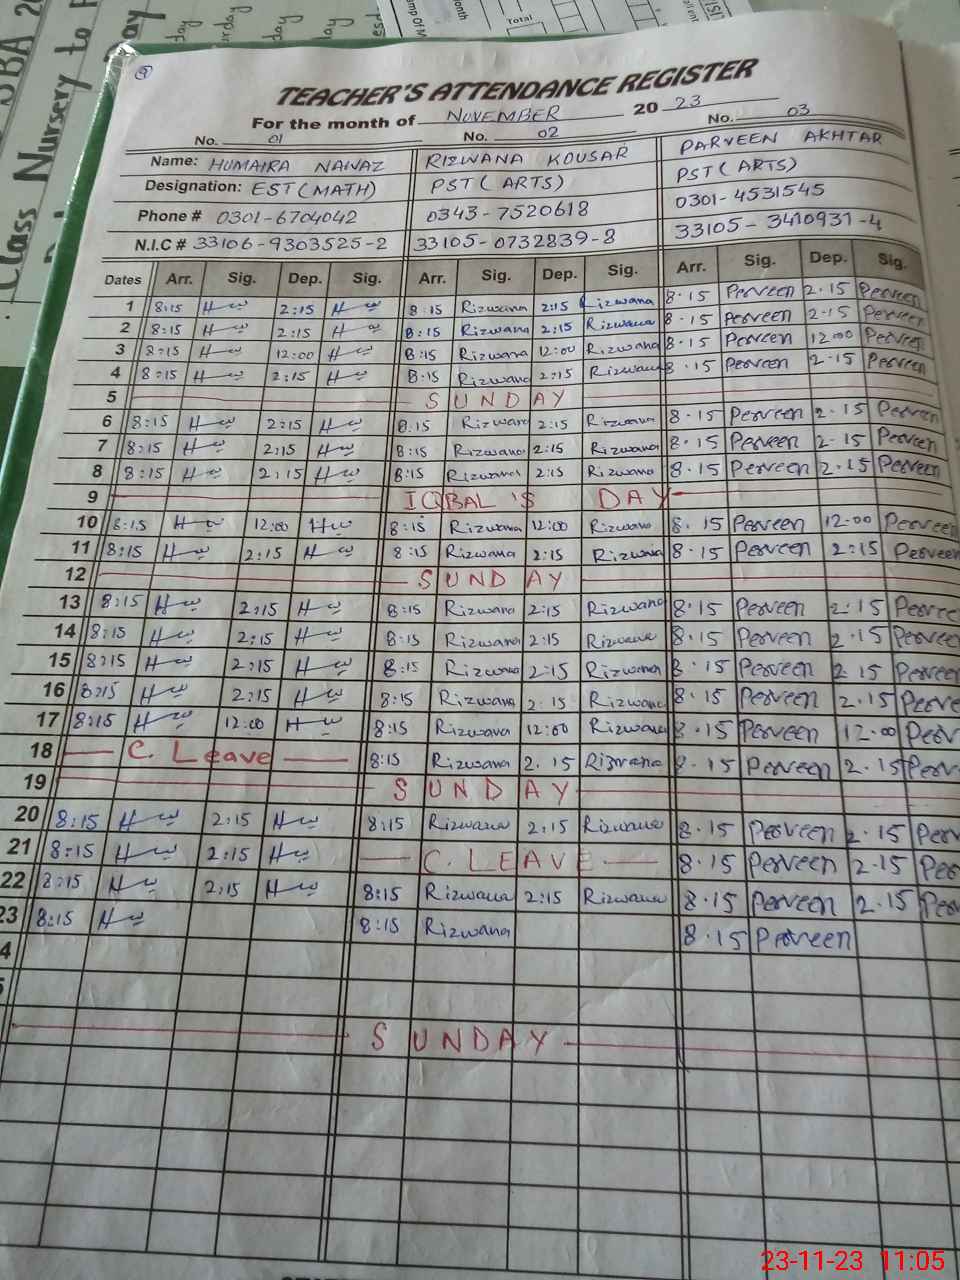 SBA 20
Class Nursery to P
Day
day
urday
day
lay
Total
onth
TEACHER'S ATTENDANCE REGISTER
For the month of NOVEMBER 2023
No. 01 No. 02 No. 03
Name: HUMAIRA NAWAZ RIZWANA KOUSAR PARVEEN AKHTAR
Designation: EST (MATH) PST ( ARTS) PST ( ARTS)
Phone # 0301-6704042 0343-7520618 0301-4531545
N.I.C # 33106-9303525-2 33105-0732839-8 33105-3410931-4
Dates Arr. Sig. Dep. Sig. Arr. Sig. Dep. Sig. Arr. Sig. Dep. Sig.
1 8:15 2:15 8:15 Rizwana 2:15 Rizwana 8.15 Perveen 2.15 Perveen
2 8:15 2:15 8:15 Rizwana 2:15 Rizwana 8.15 Perveen 2.15 Perveen
3 8:15 12:00 8:15 Rizwana 12:00 Rizwana 8.15 Perveen 12.00 Perveen
4 8:15 2:15 8:15 Rizwana 2:15 Rizwana 8.15 Perveen 2.15 Perveen
5 SUNDAY
6 8:15 2:15 8:15 Rizwana 2:15 Rizwana 8.15 Perveen 2.15 Perveen
7 8:15 2:15 8:15 Rizwana 2:15 Rizwana 8.15 Perveen 2.15 Perveen
8 8:15 2:15 8:15 Rizwana 2:15 Rizwana 8.15 Perveen 2.15 Perveen
9 IQBAL'S DAY
10 8:15 12:00 8:15 Rizwana 12:00 Rizwana 8.15 Perveen 12.00 Perveen
11 8:15 2:15 8:15 Rizwana 2:15 Rizwana 8.15 Perveen 2:15 Perveen
12 SUNDAY
13 8:15 2:15 8:15 Rizwana 2:15 Rizwana 8.15 Perveen 2.15 Pervee
14 8:15 2:15 8:15 Rizwana 2:15 Rizwana 8.15 Perveen 2.15 Pervee
15 8:15 2:15 8:15 Rizwana 2:15 Rizwana 8.15 Perveen 2.15 Perve
16 8:15 2:15 8:15 Rizwana 2:15 Rizwana 8.15 Perveen 2.15 Perve
17 8:15 12:00 8:15 Rizwana 12:00 Rizwana 8.15 Perveen 12.00 Perv
18 C. Leave 8:15 Rizwana 2.15 Rizwana 8.15 Perveen 2.15 Perv
19 SUNDAY
20 8:15 2:15 8:15 Rizwana 2:15 Rizwana 8.15 Perveen 2.15 Perv
21 8:15 2:15 C. LEAVE 8.15 Perveen 2.15 Per
22 8:15 2:15 8:15 Rizwana 2:15 Rizwana 8.15 Perveen 2.15 Per
23 8:15 8:15 Rizwana 8.15 Perveen
4
5
SUNDAY
23-11-23 11:05